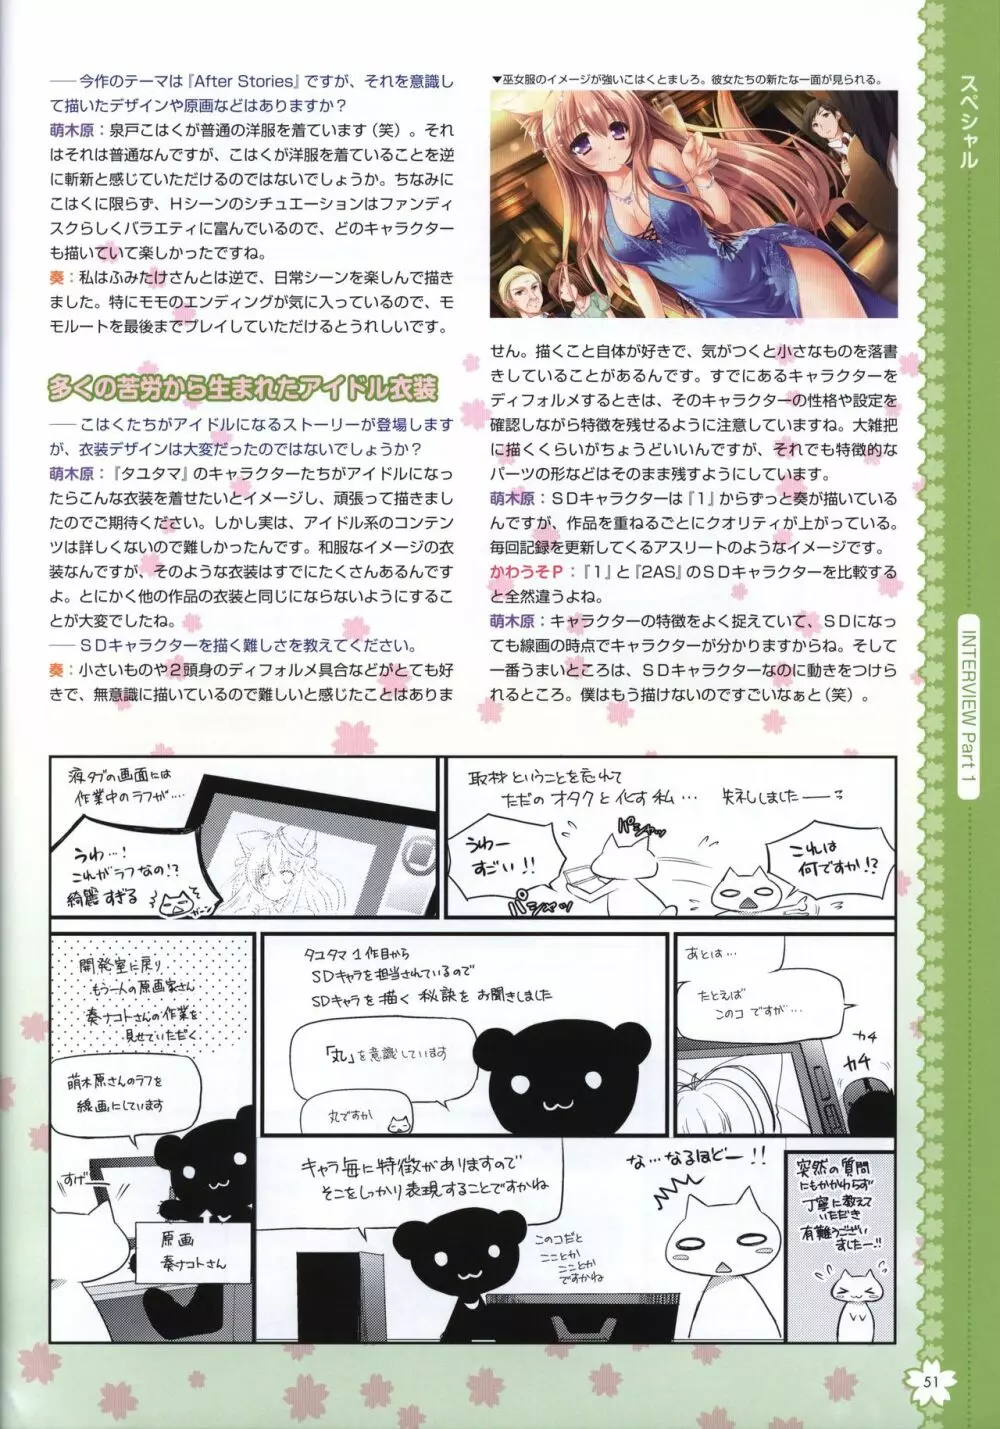 ――今作のテーマは『After Stories』ですが、それを意識し
て描いたデザインや原画などはありますか？
萌木原：泉戸こはくが普通の洋服を着ています（笑）。それ
はそれは普通なんですが、こはくが洋服を着ていることを逆
に斬新と感じていただけるのではないでしょうか。ちなみに
こはくに限らず、Ｈシーンのシチュエーションはファンディ
スクらしくバラエティに富んでいるので、どのキャラクター
も描いていて楽しかったですね。
奏：私はふみたけさんとは逆で、日常シーンを楽しんで描き
ました。特にモモのエンディングが気に入っているので、モ
モルートを最後までプレイしていただけるとうれしいです。
多くの苦労から生まれたアイドル衣装
――こはくたちがアイドルになるストーリーが登場します
が、衣装デザインは大変だったのではないでしょうか？
萌木原：『タユタマ』のキャラクターたちがアイドルになっ
たらこんな衣装を着せたいとイメージし、頑張って描きまし
たのでご期待ください。しかし実は、アイドル系のコンテン
ツは詳しくないので難しかったんです。和服なイメージの衣
装なんですが、そのような衣装はすでにたくさんあるんです
よ。とにかく他の作品の衣装と同じにならないようにするこ
とが大変でしたね。
――ＳＤキャラクターを描く難しさを教えてください。
奏：小さいものや２頭身のディフォルメ具合などがとても好
きで、無意識に描いているので難しいと感じたことはありま
▼巫女服のイメージが強いこはくとましろ。彼女たちの新たな一面が見られる。
せん。描くこと自体が好きで、気がつくと小さなものを落書
きしていることがあるんです。すでにあるキャラクターを
ディフォルメするときは、そのキャラクターの性格や設定を
確認しながら特徴を残せるように注意していますね。大雑把
に描くくらいがちょうどいいんですが、それでも特徴的な
パーツの形などはそのまま残すようにしています。
萌木原：ＳＤキャラクターは『１』からずっと奏が描いている
んですが、作品を重ねるごとにクオリティが上がっている。
毎回記録を更新してくるアスリートのようなイメージです。
かわうそＰ：『１』と『2AS』のＳＤキャラクターを比較する
と全然違うよね。
萌木原：キャラクターの特徴をよく捉えていて、ＳＤになっ
ても線画の時点でキャラクターが分かりますからね。そして
一番うまいところは、ＳＤキャラクターなのに動きをつけら
れるところ。僕はもう描けないのですごいなぁと（笑）。
スペシャル
INTERVIEW Part 1
液タブの画面には
作業中のラフが…
うわ…！
これがラフなの!?
綺麗すぎる
ガーン
取材ということを忘れて
ただのオタクと化す私… 失礼しました――
うわー
すごい!!
パシャッ
パシャッ
これは
何ですか!?
開発室に戻り
もう一人の原画家さん
奏ナコトさんの作業を
見せていただく
萌木原さんのラフを
線画にしています
すげー
原画
奏ナコトさん
タユタマ1作目から
SDキャラを担当されているので
SDキャラを描く秘訣をお聞きしました
「丸」を意識しています
丸ですか
あとは…
たとえば
このコですが…
カチ
カチ
キャラ毎に特徴がありますので
そこをしっかり表現することですかね
このコだと
こことか
こことか
ですかね
な…なるほどー!!
突然の質問
にもかかわらず
丁寧に教えて
いただき
有難うござい
ましたー!!
51